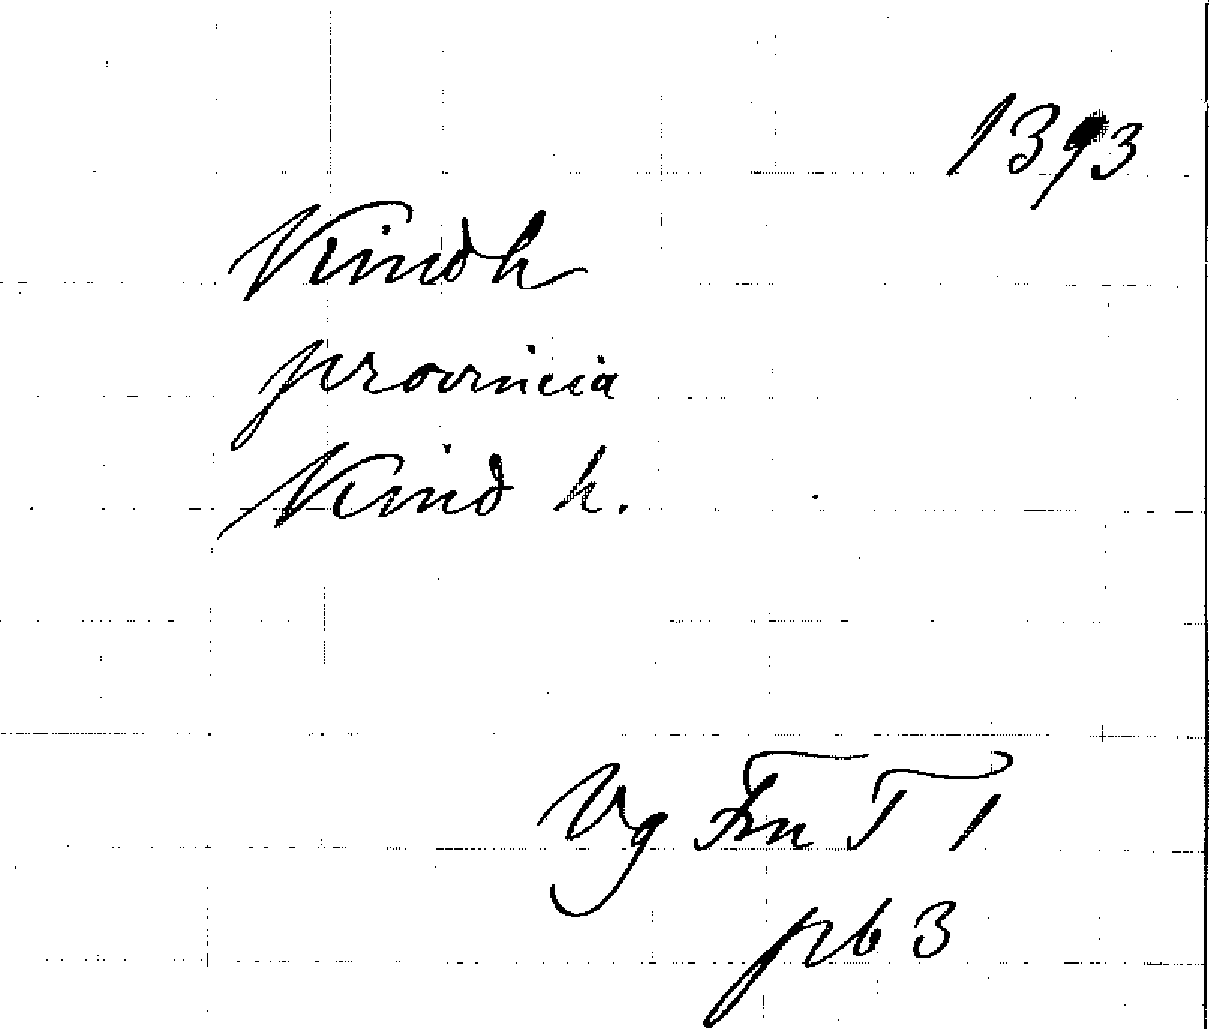 1393
Kindh
provincia
Kind h.
Vg Frn T 1
pb 3